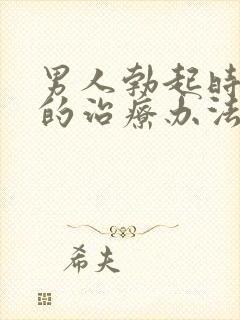 男人勃起时
的治疗办法
希夫